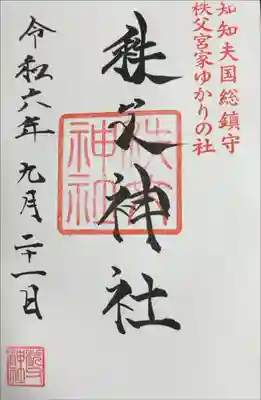 知知夫国総鎮守
秩父宮家ゆかりの社
秩父神社
秩父
神社
令和六年九月二十一日